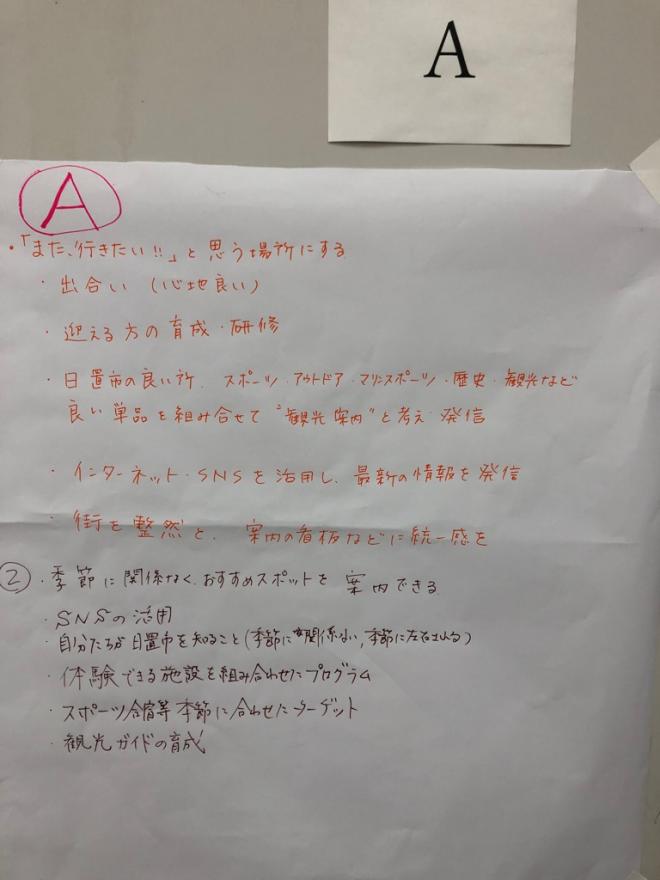 A
A
・「また、行きたい!!」と思う場所にする
・出合い (心地良い)
・迎える方の育成・研修
・日置市の良い所、スポーツ・アウトドア・マリンスポーツ・歴史・観光など
良い単品を組み合せて"観光案内"と考え 発信
・インターネット・SNSを活用し、最新の情報を発信
・街を整然と、案内の看板などに統一感を
② ・季節に関係なく、おすすめスポットを 案内できる
・SNSの活用
・自分たちが日置市を知ること(季節に関係ない、季節に左右される)
・体験できる施設を組み合わせたプログラム
・スポーツ合宿等 季節に合わせたターゲット
・観光ガイドの育成